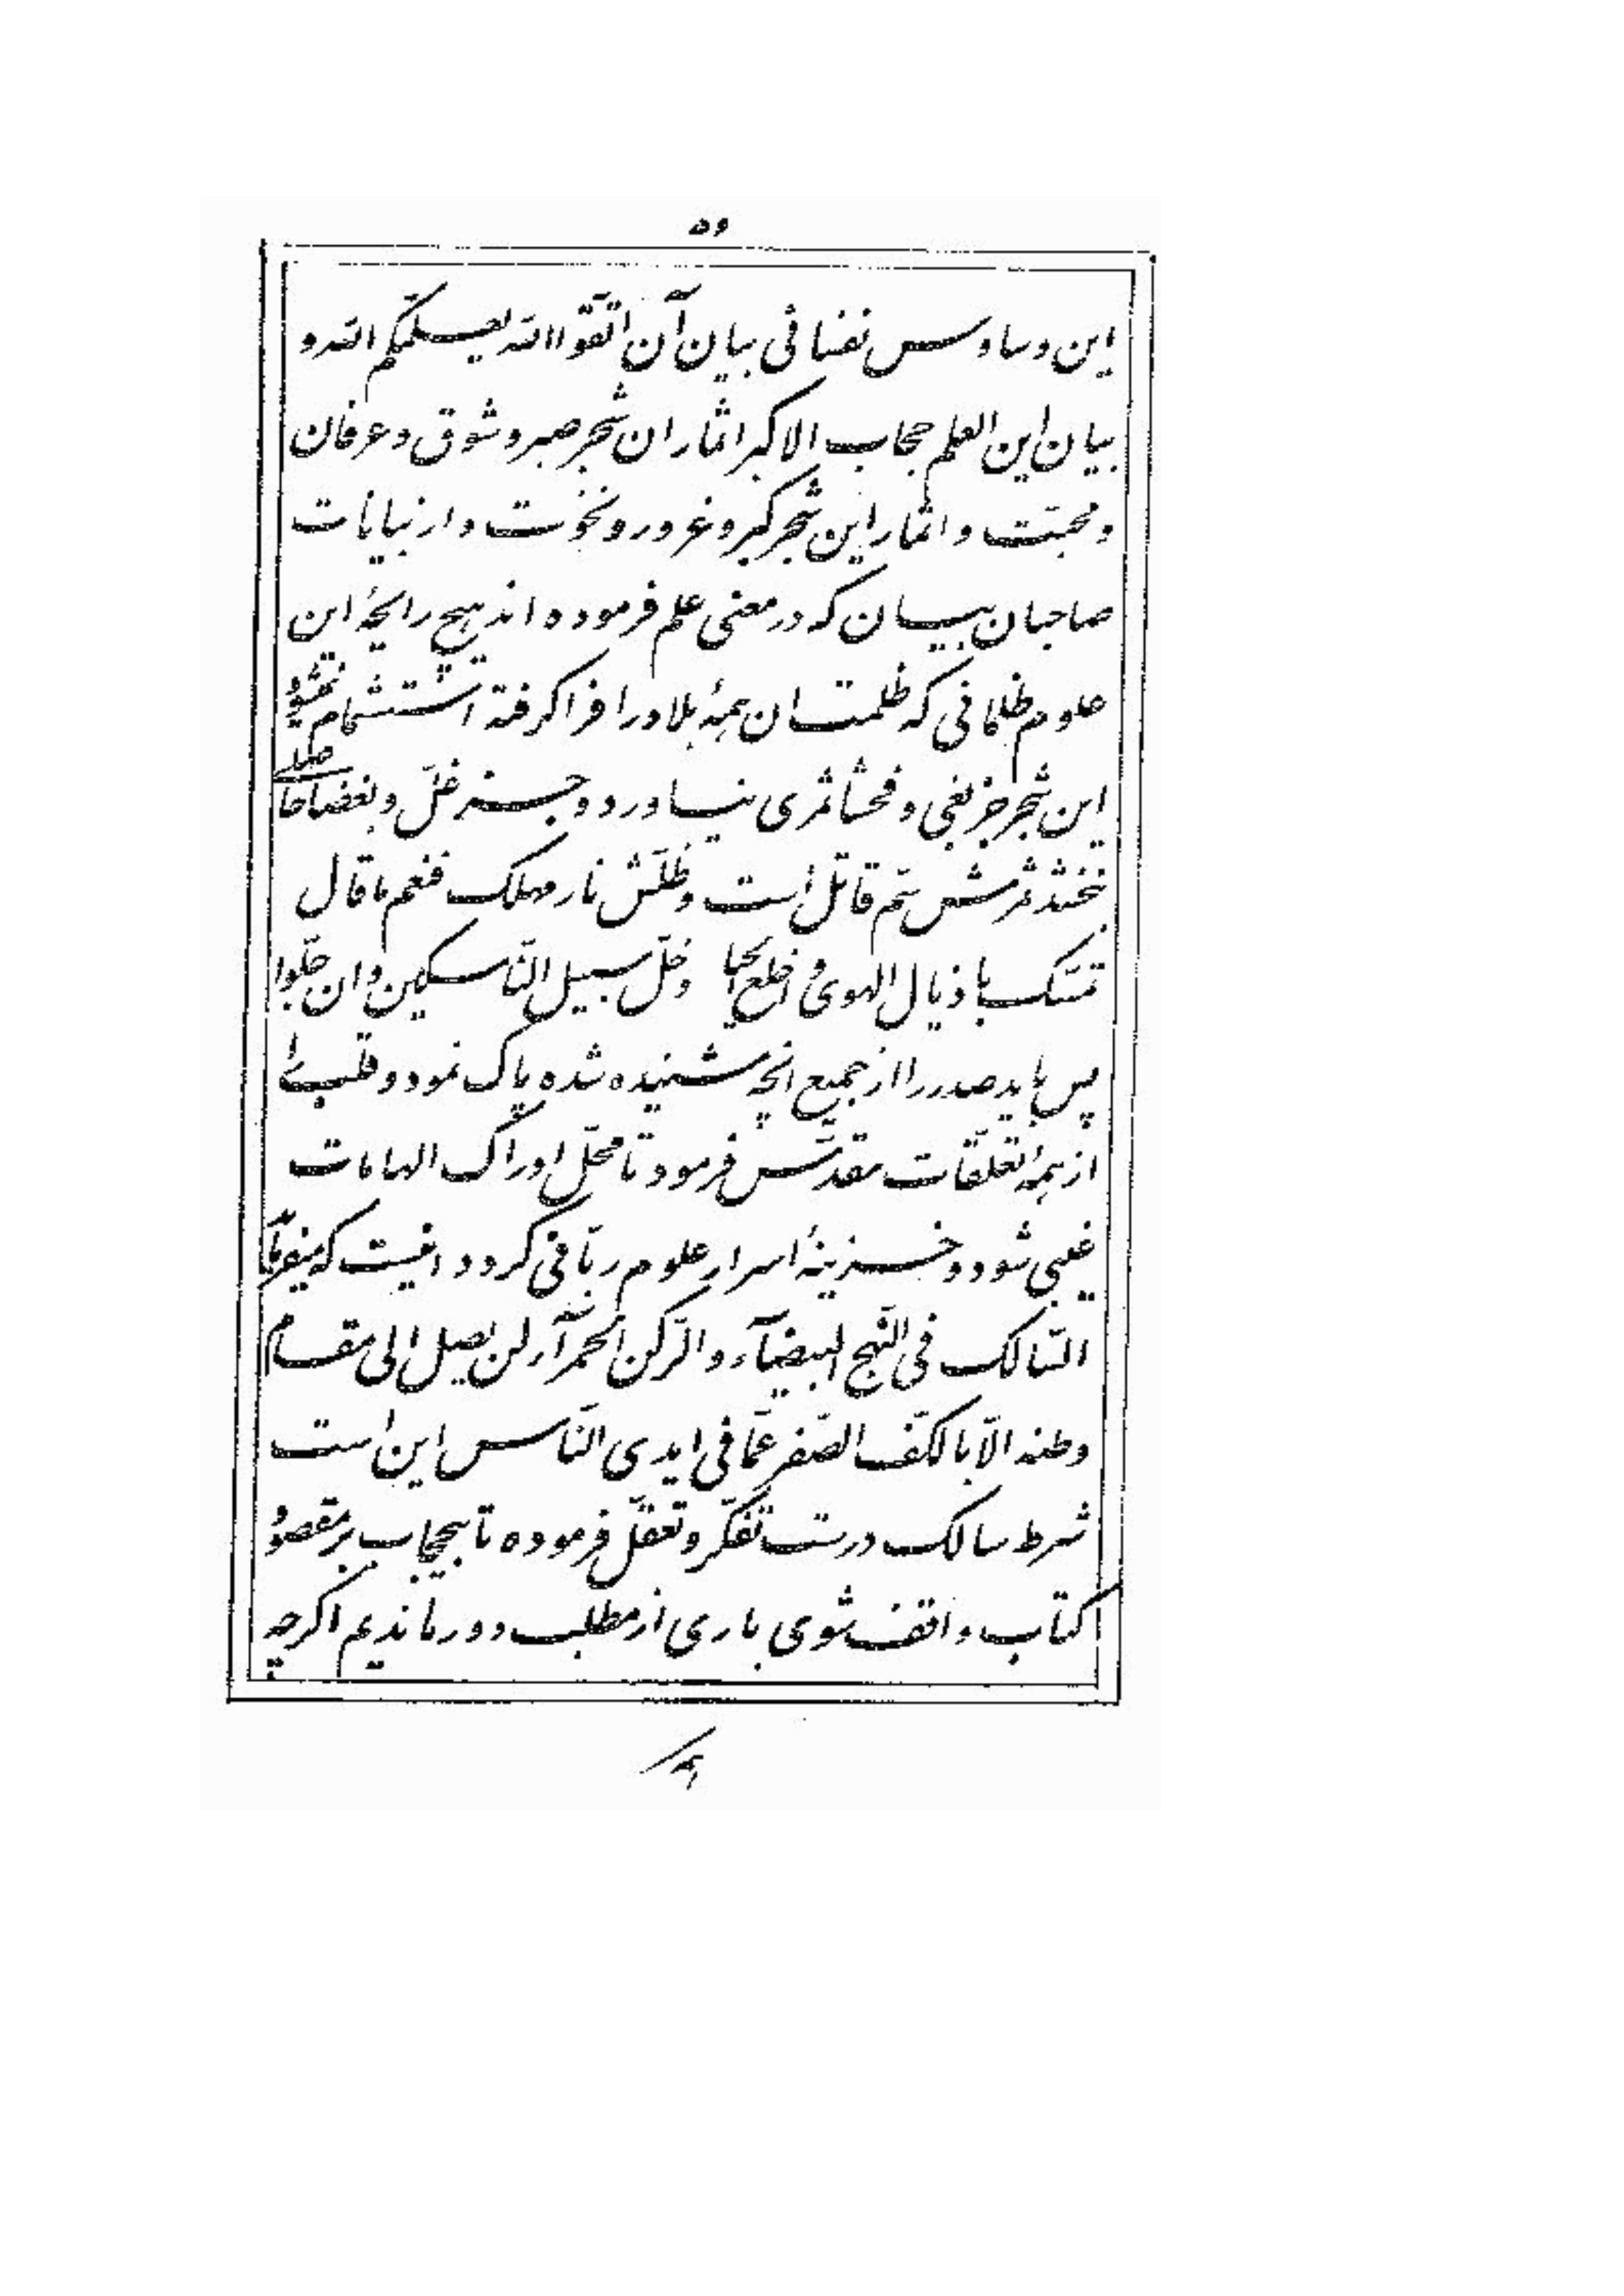 ۵۶
این وساوس نفسانی بیان آن اتّقوا الله یعلّمکم الله و
بیان این العلم حجاب الاکبر اثمار ان شجر صبر و شوق و عرفان
و محبّت و اثمار این شجر کبر و غرور و نخوت و از بیانات
صاحبان بیان که در معنی علم فرموده اند هیچ رایحهٔ این
علوم ظلمانی که ظلمت ان همهٔ بلاد را فرا گرفته استشمام نمیشود
این شجر جز بغی و فحشا ثمری نیاورد و جز غلّ و بغضا حاصلی
نبخشد ثمرش سمّ قاتل است و ظلّش نار مهلک فنعم ما قال
تمسّک باذیال الهوی و اخلع الحیا و خلّ سبیل النّاسکین و ان جلّوا
پس باید صدر را از جمیع انچه شنیده شده پاک نمود و قلب را
از همهٔ تعلّقات مقدّس فرمود تا محلّ ادراک الهامات
غیبی شود و خزینهٔ اسرار علوم ربّانی گردد اینست که میفرماید
السّالک فی النّهج البیضآء و الرّکن الحمرآء لن یصل الی مقام
وطنه الّا بالکفّ الصّفر عمّا فی ایدی النّاس این است
شرط سالک درست تفکّر و تعقّل فرموده تا بیحجاب بر مقصود
کتاب واقف شوی باری از مطلب دور ماندیم اگرچه
همه